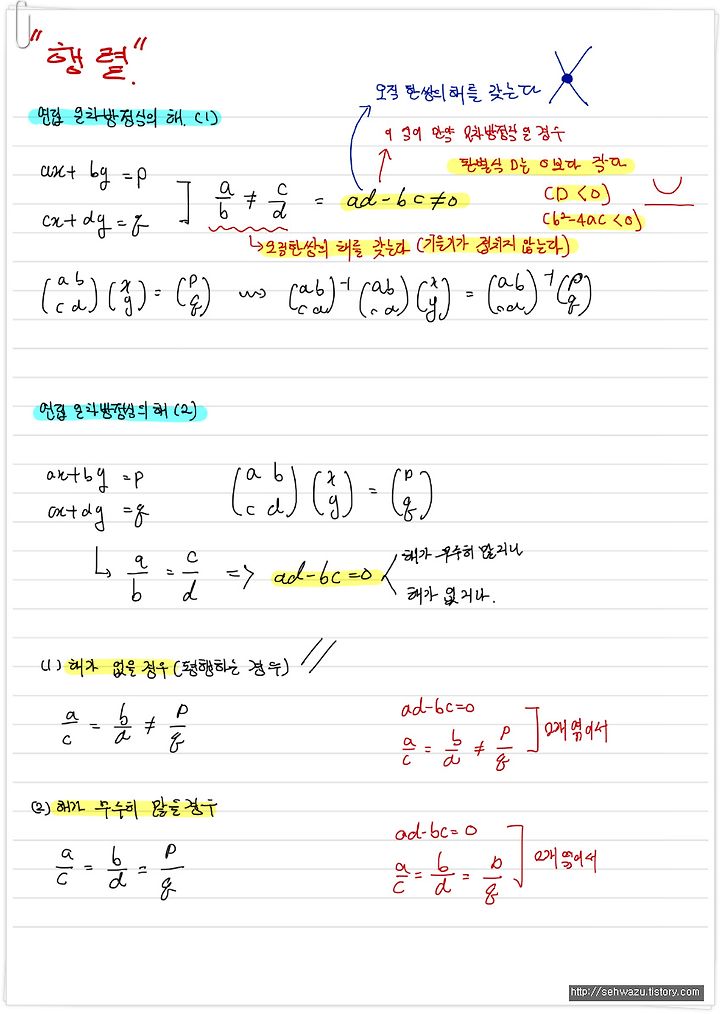 "행렬".
연립 일차방정식의 해. (1)
오직 한쌍의 해를 갖는다
이 식이 만약 이차방정식일 경우
판별식 D는 0보다 작다
(D<0)
(b²-4ac<0)
ax+by=p
cx+dy=q
a/b ≠ c/d = ad-bc≠0
↳ 오직한쌍의 해를 갖는다 (기울기가 겹치지 않는다)
(a b c d)(x y) = (p q) ⇝ (a b c d)⁻¹(a b c d)(x y) = (a b c d)⁻¹(p q)
연립 일차방정식의 해 (2)
ax+by=p
cx+dy=q
(a b c d)(x y) = (p q)
↳ a/b = c/d => ad-bc=0
해가 무수히 많거나
해가 없거나.
(1) 해가 없을 경우 (평행하는 경우) //
a/c = b/d ≠ p/q
ad-bc=0
a/c = b/d ≠ p/q
2개 엮어서
(2) 해가 무수히 많을 경우
a/c = b/d = p/q
ad-bc=0
a/c = b/d = p/q
2개 엮어서
http://sehwazu.tistory.com